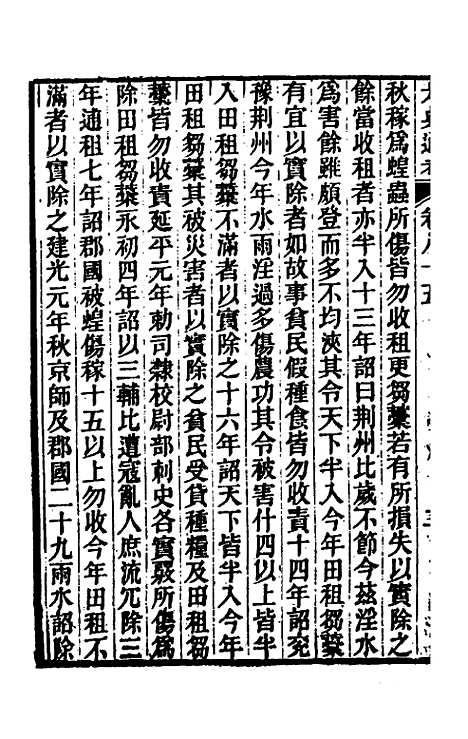 秋稼爲蝗蟲所傷皆勿收租更芻藳若有所損失以實除之
餘當收租者亦半入十三年詔曰荆州比歲不節今兹淫水
爲害餘雖頗登而多不均浹其令天下半入今年田租芻藳
有宜以實除者如故事貧民假種食皆勿收責十四年詔兖
豫荆州今年水雨淫過多傷農功其令被害什四以上皆半
入田租芻藳不滿者以實除之十六年詔天下皆半入今年
田租芻藳其被災害者以實除之貧民受貸種糧及田租芻
藳皆勿收責延平元年勅司隸校尉部刺史各實覈所傷爲
除田租芻藳永初四年詔以三輔比遭寇亂人庶流冗除三
年逋租七年詔郡國被蝗傷稼十五以上勿收今年田租不
滿者以實除之建光元年秋京師及郡國二十九雨水詔除